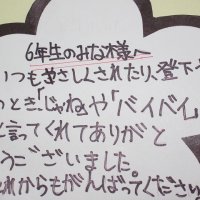 6年生のみな様へ
いつもやさしくされたり、登下
のとき「じゃね」や「バイバイ」
と言ってくれてありがと
うございました。
これからもがんばってください